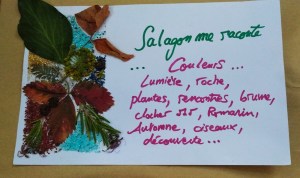 Salagon me raconte
... Couleurs ...
Lumière, roche,
plantes, rencontres, brume,
clocher, Romarin,
Automne, oiseaux,
découverte ...